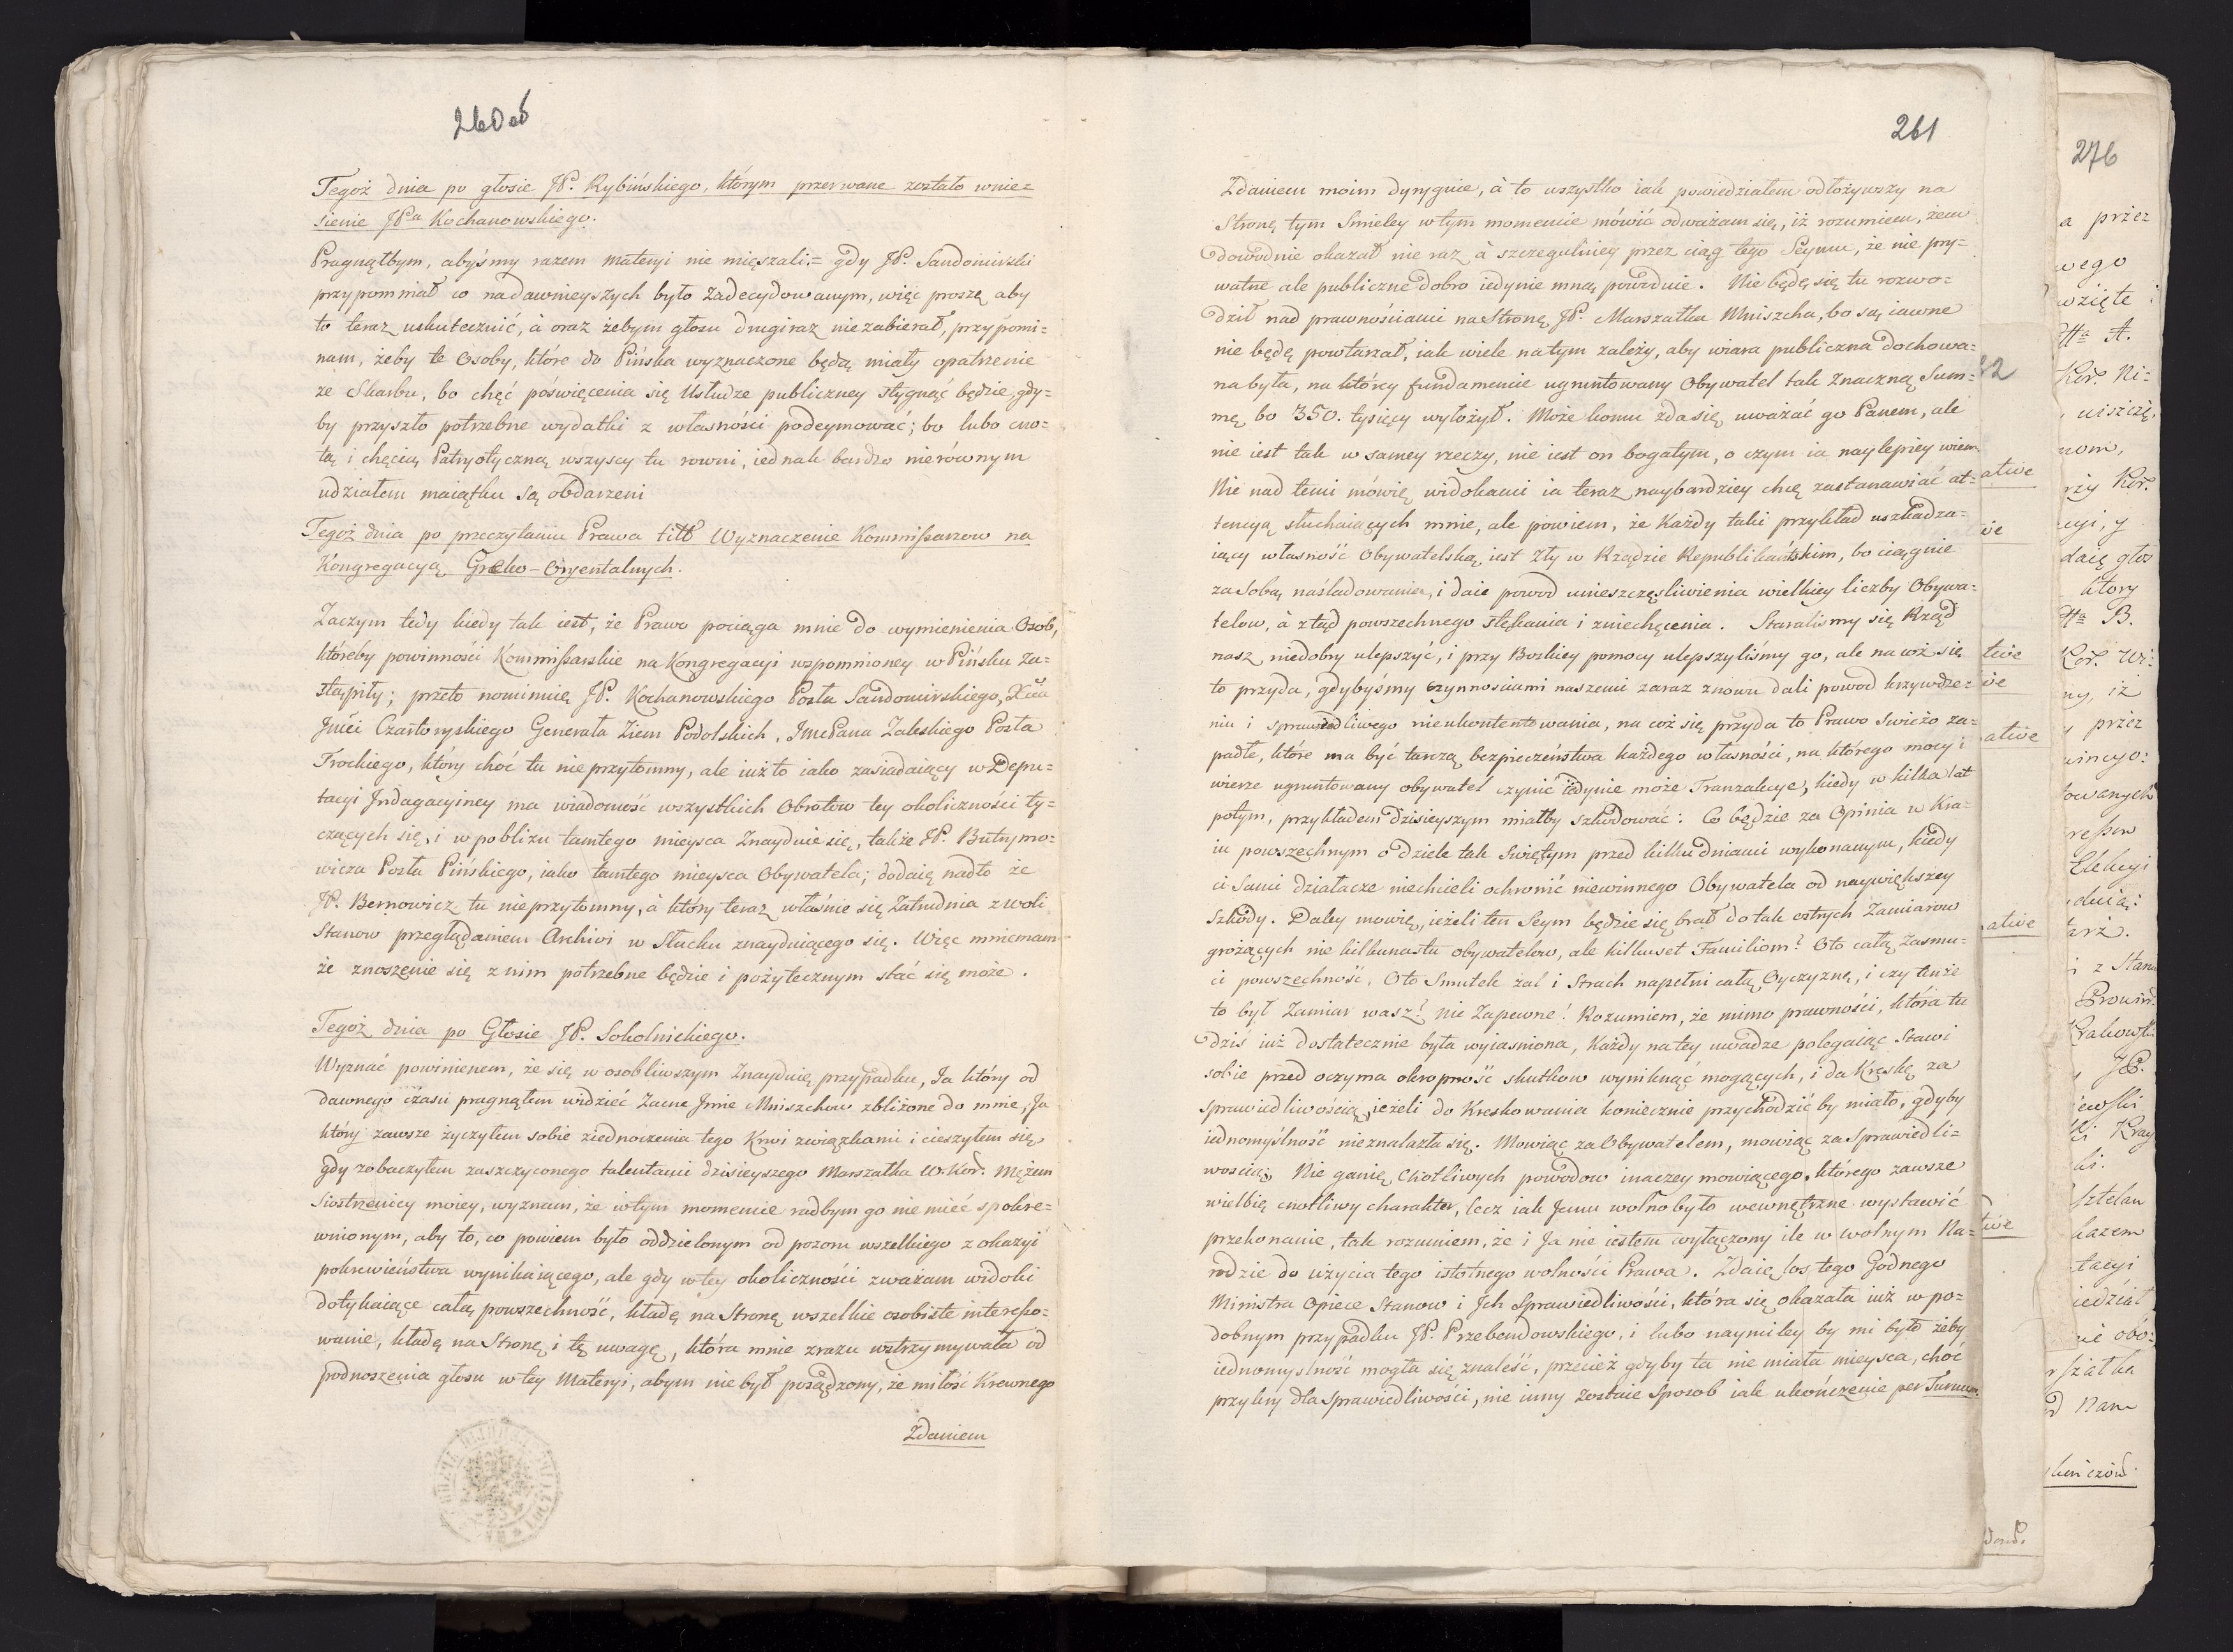 260 ob
Tegoż dnia po głosie JP. Rybińskiego, którym przerwane zostało wnie=
sienie JPa Kochanowskiego.
Pragnąłbym, abyśmy razem materyi nie mięszali= gdy JP. Sandomirski
przypomniał co na dawnieyszych było zadecydowanym, więc proszę aby
to teraz uskutecznić, à oraz żebym głosu drugi raz niezabierał, przypomi=
nam, żeby te Osoby, które do Pińska wyznaczone będą miały opatrzenie
ze Skarbu, bo chęć póświęcenia się Usłudze publiczney stygnąć będzie, gdy=
by przyszło potrzebne wydatki z własności podeymować; bo lubo cno=
tą i chęcią Patryotyczną wszyscy tu rowni, iednak bardzo nierównym
udziałem maiątku są obdarzeni
Tegoż dnia po przeczytaniu Prawa titł Wyznaczenie Kommissarzow na
Kongregacyą Greko-Oryentalnych.
Zaczym tedy kiedy tak iest, że Prawo pociąga mnie do wymienienia Osob,
któreby powinności Kommissarskie na Kongregacyi wspomnioney w Pińsku za=
stąpiły; przeto nominuię JP. Kochanowskiego Posła Sandomirskiego, Xcia
Jmći Czartoryskiego Generała Ziem Podolskich, JmcPana Zaleskiego Posła
Trockiego, który choć tu nieprzytomny, ale iuż to iako zasiadaiący w Depu=
tacyi Indagacyiney ma wiadomość wszystkich Obrotów tey okoliczności ty=
czących się, i w pobliżu tamtego mieysca znayduie się, także JP. Butrymo=
wicza Posła Pińskiego, iako tamtego mieysca Obywatela; dodaię nadto że
JP. Bernowicz tu nieprzytomny, à który teraz właśnie się zatrudnia z woli
Stanow przeglądaniem Archivi w Słucku znayduiącego się. Więc mniemam
że znoszenie się z nim potrzebne będzie i pożytecznym stać się może.
Tegoż dnia po Głosie JP. Sokolnickiego.
Wyznać powinienem, że się w osobliwszym znayduię przypadku, Ja który od
dawnego czasu pragnąłem widzieć Zacne Jmie Mniszchow zbliżone do mnie, Ja
który zawsze życzyłem sobie ziednoczenia tego Krwi związkami i cieszyłem się
gdy zobaczyłem zaszczyconego talentami dzisieyszego Marszałka W. Kor. Mężem
Siostrzenicy moiey, wyznam, że w tym momencie radbym go nie mieć spokre=
wnionym, aby to, co powiem było oddzielonym od pozoru wszelkiego z okazyi
pokrewieństwa wynikaiącego, ale gdy w tey okoliczności zważam widoki
dotykaiące całą powszechność, kładę na Stronę wszelkie osobiste interesso=
wanie, kładę na Stronę i tę uwagę, która mnie zrazu wstrzymywała od
podnoszenia głosu w tey Materyi, abym nie był posądzony, że miłość Krewnego
Zdaniem
261
Zdaniem moim dyryguie, à to wszystko iak powiedziałem odłożywszy na
Stronę tym Smieley w tym momencie mówić odważam się, iż rozumiem, żem
dowodnie okazał nie raz à szczegulniey przez ciąg tego Seymu, że nie pry=
watne ale publiczne dobro iedynie mną powoduie. Nie będę się tu rozwo=
dził nad prawnościami na Stronę JP. Marszałka Mniszcha, bo są iawne
nie będę powtarzał, iak wiele na tym zależy, aby wiara publiczna dochowa=
na była, na którey fundamencie ugruntowany Obywatel tak znaczną Sum=
mę, bo 350. tysięcy wyłożył. Może komu zda się uważać go Panem, ale
nie iest tak w samey rzeczy, nie iest on bogatym, o czym ia naylepiey wiem
Nie nad temi mówię widokami ia teraz naybardziey chcę zastanawiać at=
tencyą słuchaiących mnie, ale powiem, że Każdy taki przykład uszkadza=
iący własność Obywatelską iest zły w Rządzie Republikańskim, bo ciągnie
za Sobą naśladowanie, i daie powod unieszczęsliwienia wielkiey liczby Obywa=
telow, à ztąd powszechnego stękania i zniechęcenia. Staraliśmy się Rząd
nasz niedobry ulepszyć, i przy Boskiey pomocy ulepszyliśmy go, ale na coż się
to przyda, gdybyśmy czynnościami naszemi zaraz znowu dali powod krzywdze=
niu i sprawiedliwego nieukontentowania, na coż się przyda to Prawo Swieżo za=
padłe, które ma być tarczą bezpieczeństwa każdego własności, na którego mocy i
wierze ugruntowany obywatel czynić iedynie może Tranzakcye, kiedy w kilka lat
potym, przykładem dzisieyszym miałby szkodować: Co będzie za Opinia w Kra=
iu powszechnym o dziele tak Swiętym przed kilku dniami wykonanym, kiedy
ci Sami działacze niechcieli ochronić niewinnego Obywatela od naywiększey
Szkody. Daley mowię, ieżeli ten Seym będzie się brał do tak ostrych Zamiarow
grożących nie kilkunastu obywatelow, ale kilkuset Familiom? Oto całą zasmu=
ci powszechność, Oto Smutek żal i Strach napełni całą Oyczyznę, i czy tenże
to był Zamiar wasz? nie Zapewne! Rozumiem, że mimo prawności, która tu
dziś iuż dostatecznie była wyiasniona, Każdy na tey uwadze polegaiąc Stawi
sobie przed oczyma okropność skutkow wyniknąć mogących, i da Kręskę za
sprawiedliwością, ieżeli do Kreskowania koniecznie przychodzić by miało, gdyby
iednomyślność nieznalazła się. Mowiąc za Obywatelem, mowiąc za Sprawiedli=
wością, Nie ganię Cnotliwych powodow inaczey mowiącego, którego zawsze
wielbię cnotliwy charakter, lecz iak Jemu wolno było wewnętrzne wystawić
przekonanie, tak rozumiem, że i Ja nie iestem wyłączony ile w wolnym Na=
rodzie do użycia tego istotnego wolności Prawa. Zdaię los tego Godnego
Ministra Opiece Stanow i Jch Sprawiedliwości, która się okazała iuż w po=
dobnym przypadku JP. Przebendowskiego, i lubo naymiley by mi było żeby
iednomyslność mogła się znaleść, przecież gdyby ta nie miała mieysca, choć
przykry dla Sprawiedliwości, nie inny zostaie Sposob iak ukończenie per Turnum.
276
a przez
wego
wzięte
Kor. Ni=
nom,
daię głos
ktory
przez
Elekcyi
z Stanu
JP.
kazem
tacyi